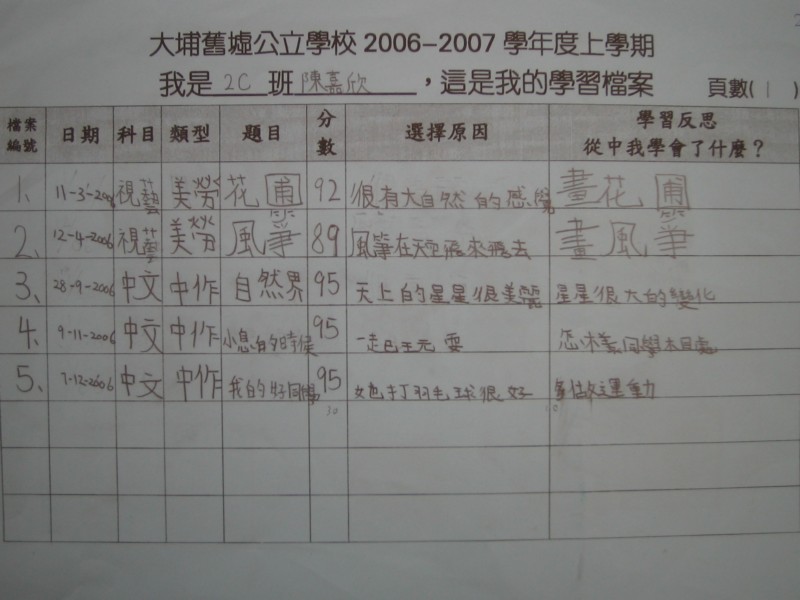 大埔舊墟公立學校 2006–2007 學年度上學期
我是 2C 班 陳嘉欣 ，這是我的學習檔案 頁數( 1 )
檔案編號 日期 科目 類型 題目 分數 選擇原因 學習反思 從中我學會了什麼？
1. 11-3-2006 視藝 美勞 花圃 92 很有大自然的感覺 畫花圃
2. 12-4-2006 視藝 美勞 風箏 89 風箏在天空飛來飛去 畫風箏
3. 28-9-2006 中文 中作 自然界 95 天上的星星很美麗 星星很大的變化
4. 9-11-2006 中文 中作 小息的時候 95 一起 怎樣同學
5. 7-12-2006 中文 中作 我的好同學 95 她打羽毛球很好 多做運動